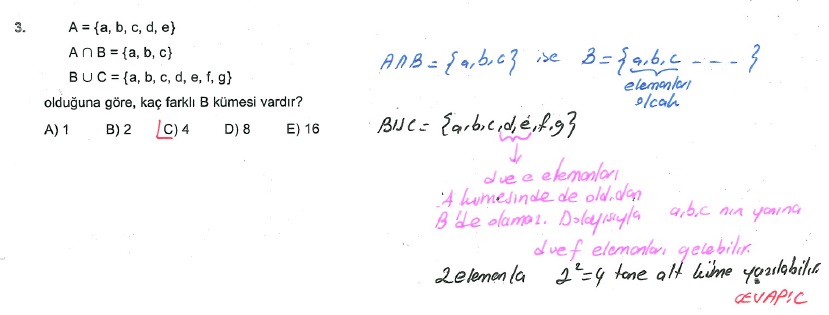 3. A = {a, b, c, d, e}
A ∩ B = {a, b, c}
B ∪ C = {a, b, c, d, e, f, g}
olduğuna göre, kaç farklı B kümesi vardır?
A) 1 B) 2 C) 4 D) 8 E) 16
A∩B = {a,b,c} ise B = {a,b,c - - - }
elemanları
olcak
B∪C = {a,b,c,d,e,f,g}
d ve e elemanları
A kümesinde de old.dan
B'de olamaz. Dolayısıyla a,b,c nın yanına
d ve f elemanları gelebilir.
2 elemanla 2²=4 tane alt küme yazılabilir.
CEVAP: C